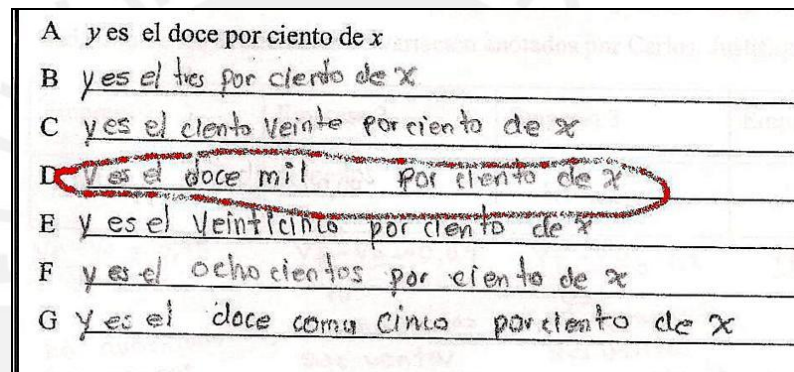 A y es el doce por ciento de x
B y es el tres por ciento de x
C y es el ciento veinte por ciento de x
D y es el doce mil por ciento de x
E y es el veinticinco por ciento de x
F y es el ochocientos por ciento de x
G y es el doce coma cinco por ciento de x